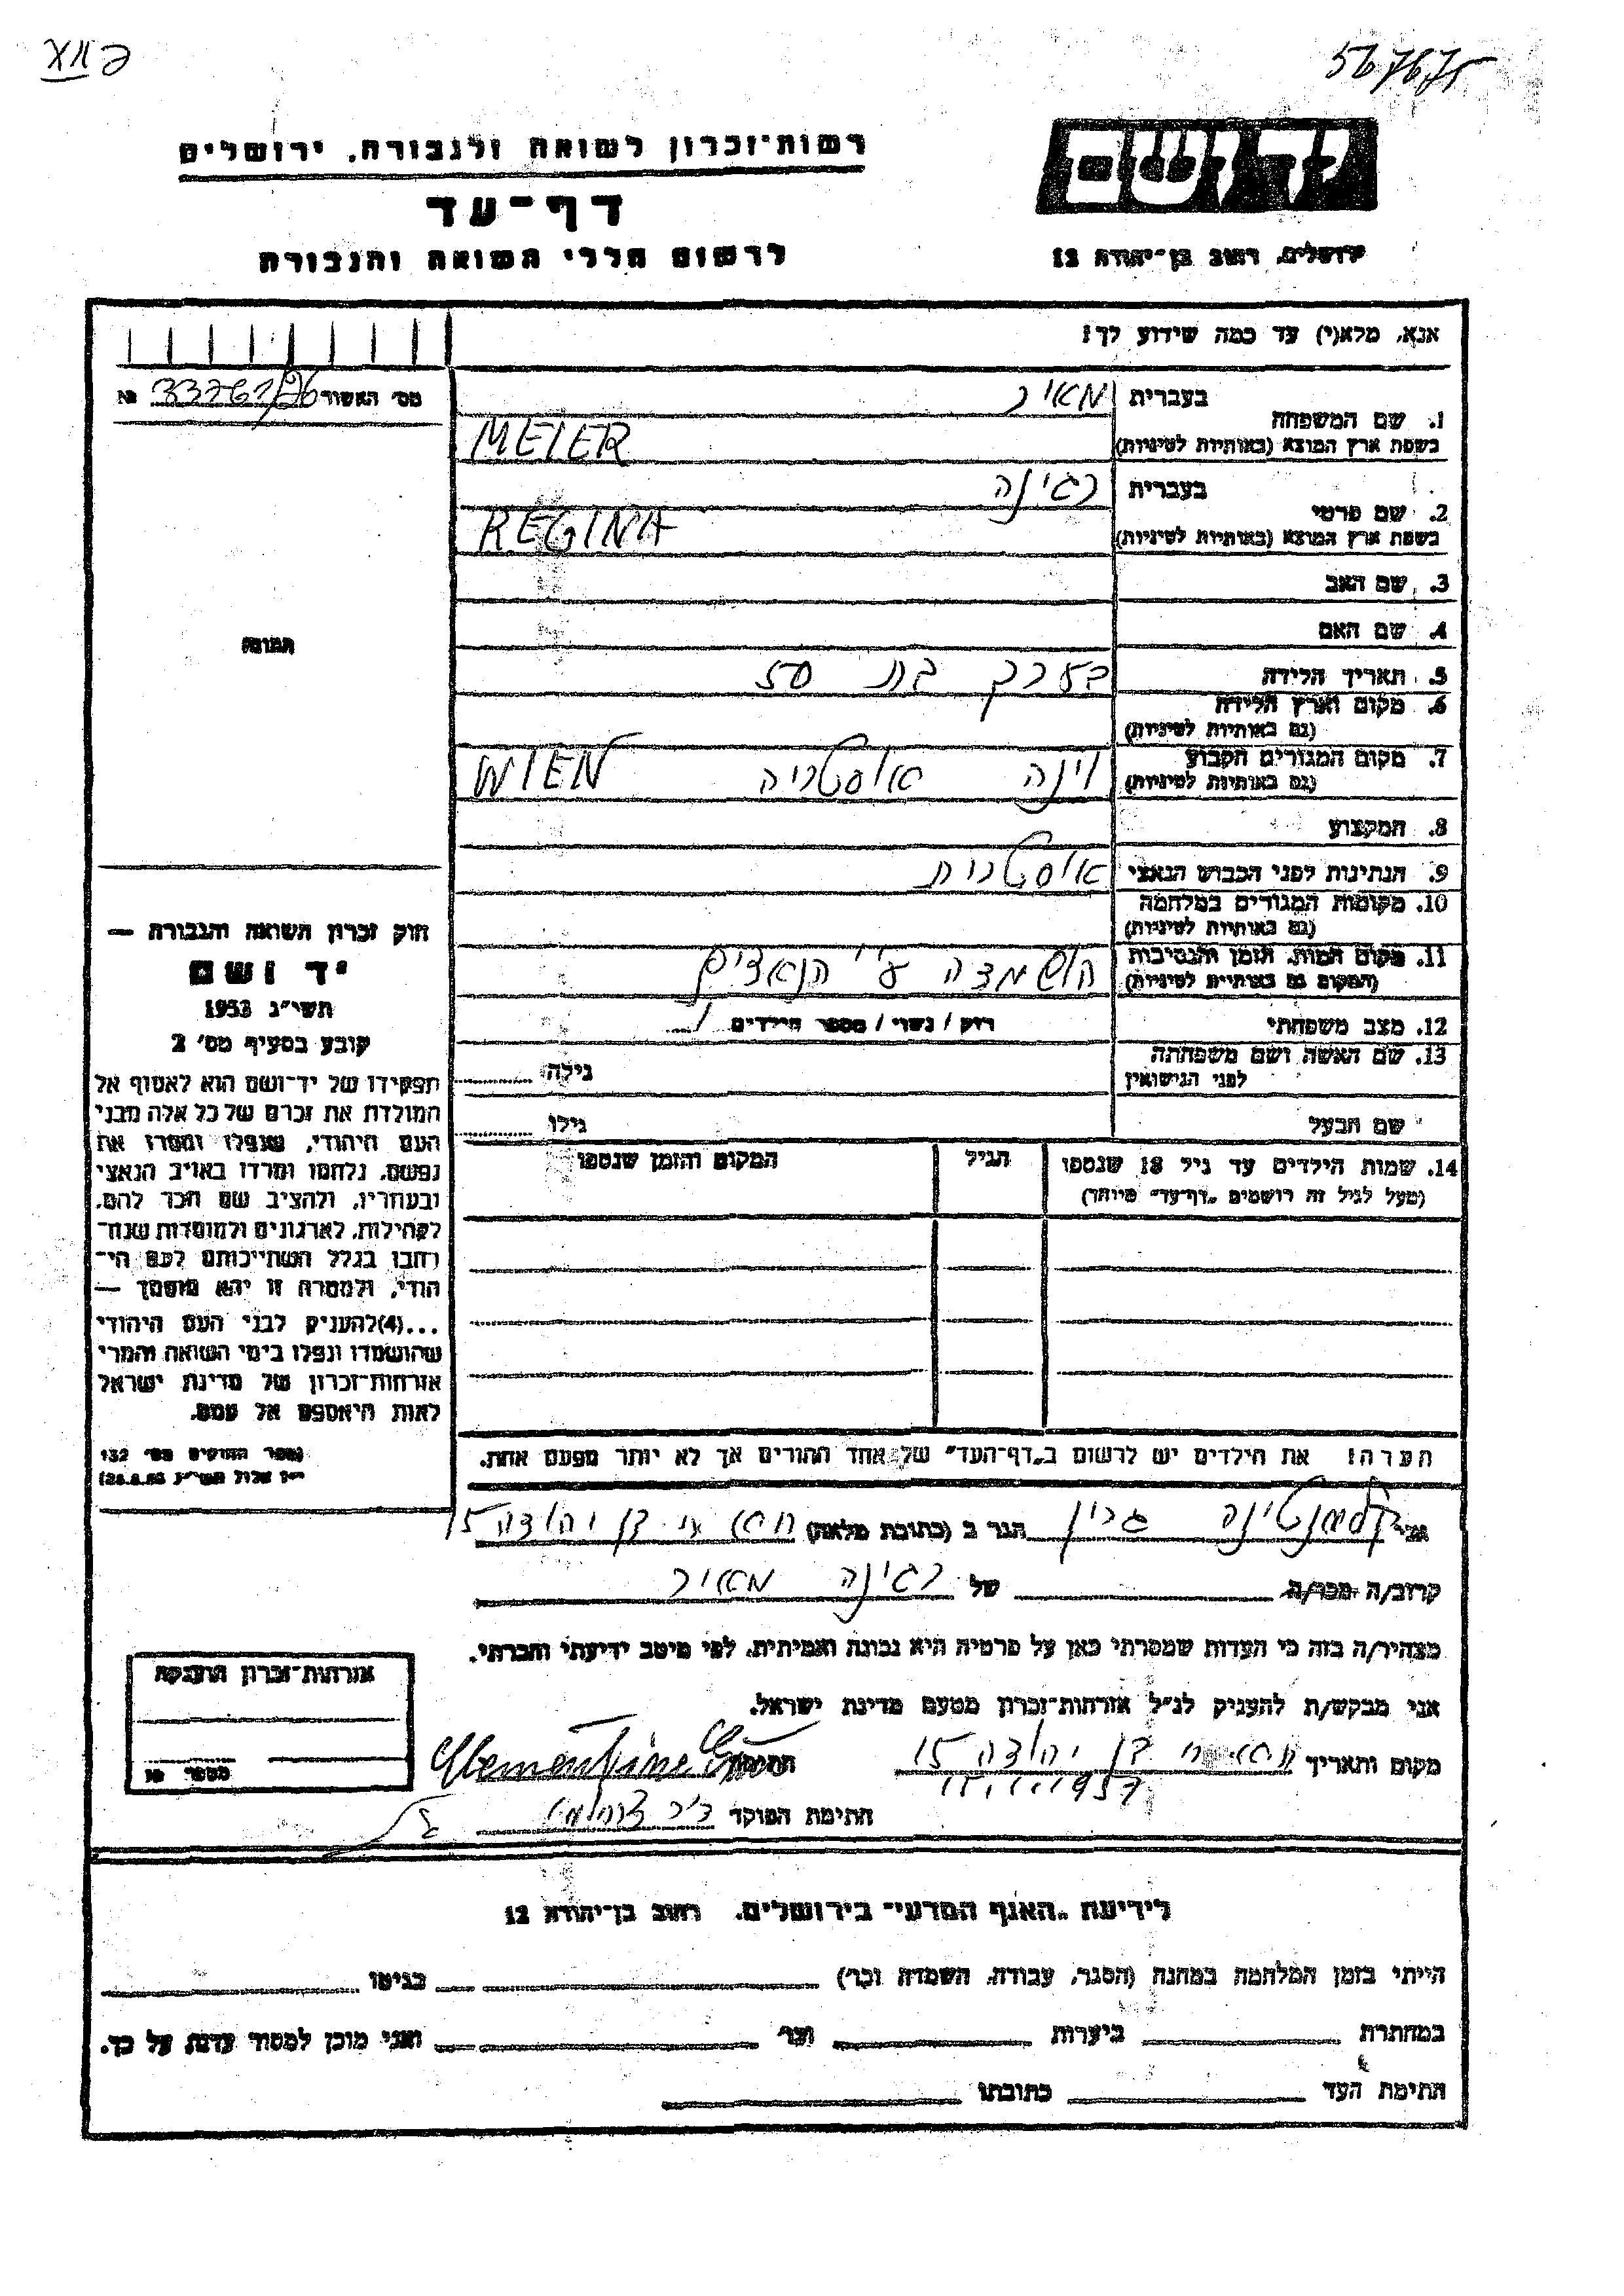 567675
רשות־זכרון לשואה ולגבורה, ירושלים
דף־עד
לרשום חללי השואה והגבורה
ירושלים, רחוב בן־יהודה 12
אנא, מלא(י) עד כמה שידוע לך!
מס׳ האשור 33761/26 №
בעברית מאיר
1. שם המשפחה
בשפת ארץ המוצא (באותיות לטיניות) MEIER
בעברית רגינה
2. שם פרטי
בשפת ארץ המוצא (באותיות לטיניות) REGINA
3. שם האב
4. שם האם
5. תאריך הלידה בערך בת 50
6. מקום וארץ הלידה
(גם באותיות לטיניות)
7. מקום המגורים הקבוע וינה אוסטריה WIEN
(גם באותיות לטיניות)
8. המקצוע
9. הנתינות לפני הכבוש הנאצי אוסטרית
10. מקומות המגורים במלחמה
(גם באותיות לטיניות)
11. מקום המות, הזמן והנסיבות הושמדה ע״י הנאצים
(המקום גם באותיות לטיניות)
12. מצב משפחתי רווק / נשוי / מספר הילדים
13. שם האשה ושם משפחתה
לפני הנישואין גילה
שם הבעל גילו
14. שמות הילדים עד גיל 18 שנספו הגיל המקום והזמן שנספו
(מעל לגיל זה רושמים „דף־עד״ מיוחד)
התמונה
חוק זכרון השואה והגבורה —
יד ושם
תשי״ג 1953
קובע בסעיף מס׳ 2
תפקידו של יד־ושם הוא לאסוף אל
המולדת את זכרם של כל אלה מבני
העם היהודי, שנפלו ומסרו את
נפשם, נלחמו ומרדו באויב הנאצי
ובעוזריו, ולהציב שם וזכר להם,
לקהילות, לארגונים ולמוסדות שנח־
רבו בגלל השתייכותם לעם הי־
הודי, ולמטרה זו יהא מוסמך —
...(4)להעניק לבני העם היהודי
שהושמדו ונפלו בימי השואה והמרי
אזרחות־זכרון של מדינת ישראל
לאות היאספם אל עמם.
(ספר החוקים מס׳ 132
י״ז אלול תשי״ג 28.8.53)
הערה: את הילדים יש לרשום ב„דף־העד״ של אחד ההורים אך לא יותר מפעם אחת.
אני קלמנטינה גרין הגר ב (כתובת מלאה) בן יהודה 15
קרוב/ה מכר/ה של רגינה מאיר
מצהיר/ה בזה כי העדות שמסרתי כאן על פרטיה היא נכונה ואמיתית, לפי מיטב ידיעתי והכרתי.
אני מבקש/ת להעניק לנ״ל אזרחות־זכרון מטעם מדינת ישראל.
מקום ותאריך בן יהודה 15 חתימה Clementine
1957
חתימת הפוקד
אזרחות־זכרון הוענקה
מספר №
לידיעת „האגף המדעי״ בירושלים, רחוב בן־יהודה 12
הייתי בזמן המלחמה במחנה (הסגר, עבודה, השמדה וכו׳) בגיטו
במחתרת ביערות וכו׳ ואני מוכן למסור עדות על כך.
חתימת העד כתובתו